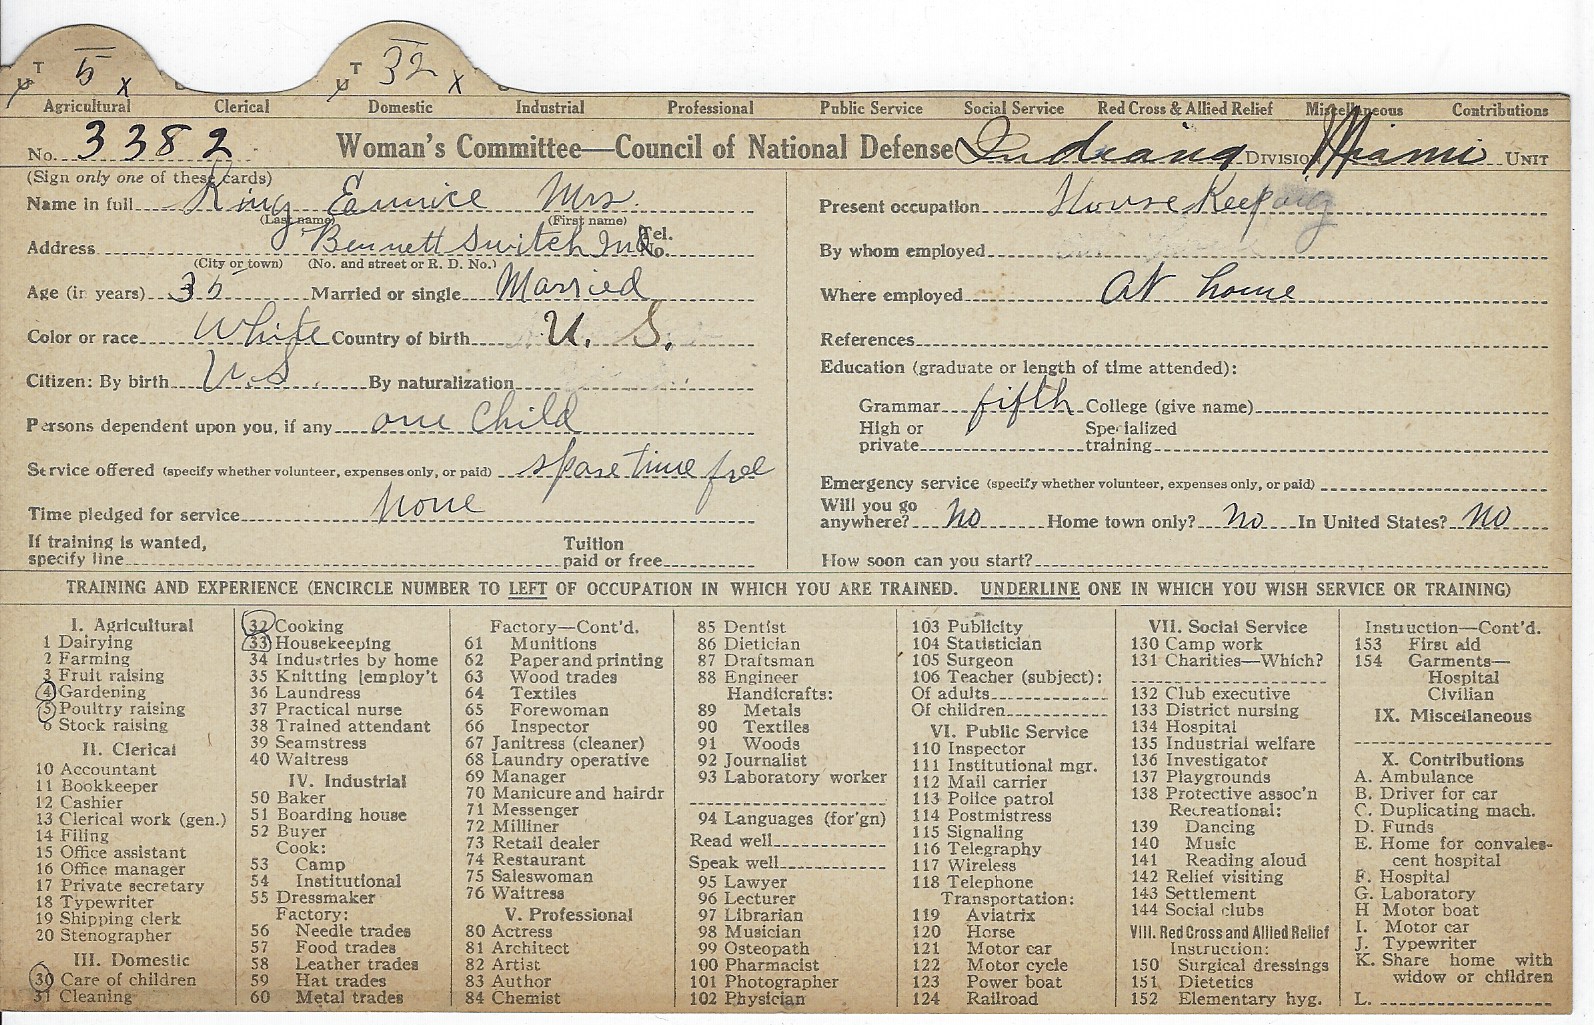 U T 5 X U T 32 X
Agricultural Clerical Domestic Industrial Professional Public Service Social Service Red Cross & Allied Relief Miscellaneous Contributions
No. 3382 Woman's Committee—Council of National Defense Indiana DIVISION Miami UNIT
(Sign only one of these cards)
Name in full King Eunice Mrs.
(Last name) (First name)
Address Bennett Switch Ind Tel. No.
(City or town) (No. and street or R. D. No.)
Age (in years) 35 Married or single Married
Color or race White Country of birth U. S.
Citizen: By birth U.S. By naturalization
Persons dependent upon you, if any one child
Service offered (specify whether volunteer, expenses only, or paid) spare time free
Time pledged for service none
If training is wanted, specify line Tuition paid or free
Present occupation House Keeping
By whom employed
Where employed at home
References
Education (graduate or length of time attended):
Grammar fifth College (give name)
High or private Specialized training
Emergency service (specify whether volunteer, expenses only, or paid)
Will you go anywhere? No Home town only? No In United States? No
How soon can you start?
TRAINING AND EXPERIENCE (ENCIRCLE NUMBER TO LEFT OF OCCUPATION IN WHICH YOU ARE TRAINED. UNDERLINE ONE IN WHICH YOU WISH SERVICE OR TRAINING)
I. Agricultural
1 Dairying
2 Farming
3 Fruit raising
4 Gardening
5 Poultry raising
6 Stock raising
II. Clerical
10 Accountant
11 Bookkeeper
12 Cashier
13 Clerical work (gen.)
14 Filing
15 Office assistant
16 Office manager
17 Private secretary
18 Typewriter
19 Shipping clerk
20 Stenographer
III. Domestic
30 Care of children
31 Cleaning
32 Cooking
33 Housekeeping
34 Industries by home
35 Knitting [employ't
36 Laundress
37 Practical nurse
38 Trained attendant
39 Seamstress
40 Waitress
IV. Industrial
50 Baker
51 Boarding house
52 Buyer
Cook:
53 Camp
54 Institutional
55 Dressmaker
Factory:
56 Needle trades
57 Food trades
58 Leather trades
59 Hat trades
60 Metal trades
Factory—Cont'd.
61 Munitions
62 Paper and printing
63 Wood trades
64 Textiles
65 Forewoman
66 Inspector
67 Janitress (cleaner)
68 Laundry operative
69 Manager
70 Manicure and hairdr
71 Messenger
72 Milliner
73 Retail dealer
74 Restaurant
75 Saleswoman
76 Waitress
V. Professional
80 Actress
81 Architect
82 Artist
83 Author
84 Chemist
85 Dentist
86 Dietician
87 Draftsman
88 Engineer
Handicrafts:
89 Metals
90 Textiles
91 Woods
92 Journalist
93 Laboratory worker
94 Languages (for'gn)
Read well
Speak well
95 Lawyer
96 Lecturer
97 Librarian
98 Musician
99 Osteopath
100 Pharmacist
101 Photographer
102 Physician
103 Publicity
104 Statistician
105 Surgeon
106 Teacher (subject):
Of adults
Of children
VI. Public Service
110 Inspector
111 Institutional mgr.
112 Mail carrier
113 Police patrol
114 Postmistress
115 Signaling
116 Telegraphy
117 Wireless
118 Telephone
Transportation:
119 Aviatrix
120 Horse
121 Motor car
122 Motor cycle
123 Power boat
124 Railroad
VII. Social Service
130 Camp work
131 Charities—Which?
132 Club executive
133 District nursing
134 Hospital
135 Industrial welfare
136 Investigator
137 Playgrounds
138 Protective assoc'n
Recreational:
139 Dancing
140 Music
141 Reading aloud
142 Relief visiting
143 Settlement
144 Social clubs
VIII. Red Cross and Allied Relief
Instruction:
150 Surgical dressings
151 Dietetics
152 Elementary hyg.
Instruction—Cont'd.
153 First aid
154 Garments—
Hospital
Civilian
IX. Miscellaneous
X. Contributions
A. Ambulance
B. Driver for car
C. Duplicating mach.
D. Funds
E. Home for convales-
cent hospital
F. Hospital
G. Laboratory
H Motor boat
I. Motor car
J. Typewriter
K. Share home with
widow or children
L.